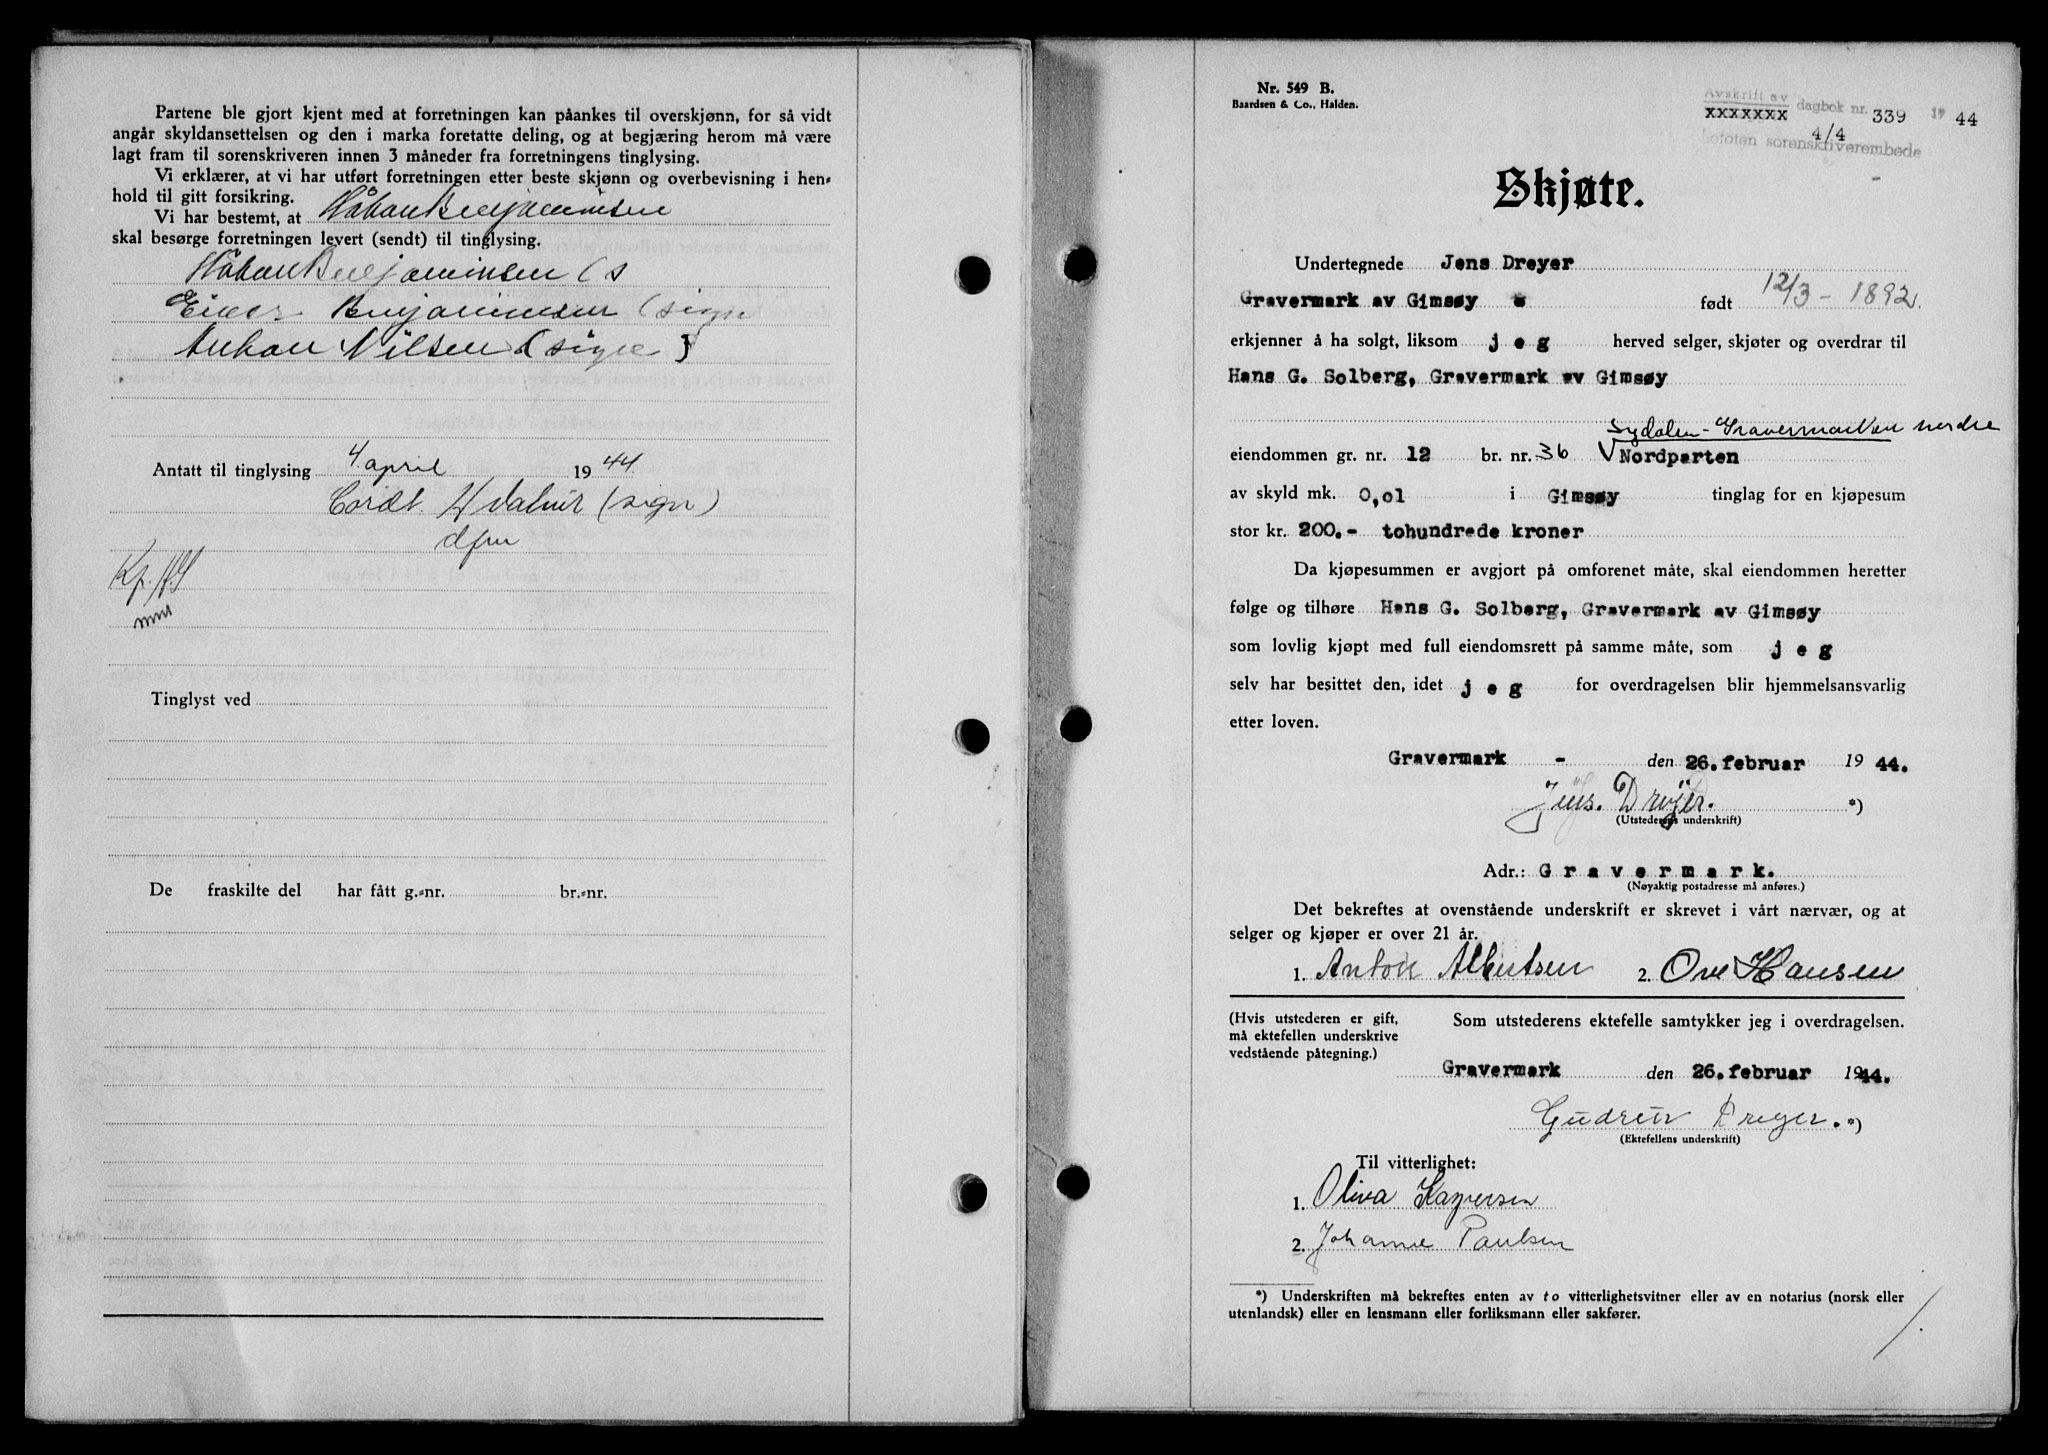 Partene ble gjort kjent med at forretningen kan påankes til overskjønn, for så vidt
angår skyldansettelsen og den i marka foretatte deling, og at begjæring herom må være
lagt fram til sorenskriveren innen 3 måneder fra forretningens tinglysing.
Vi erklærer, at vi har utført forretningen etter beste skjønn og overbevisning i hen-
hold til gitt forsikring.
Vi har bestemt, at Håkon Benjaminsen
skal besørge forretningen levert (sendt) til tinglysing.
Håkon Benjaminsen (s
Einar Benjaminsen (sign
Nilsen (sign)
Antatt til tinglysing 4. april 1944
(sign)
dfm
Tinglyst ved
De fraskilte del har fått g.-nr. br.-nr.
Nr. 549 B.
Baardsen & Co., Halden.
Avskrift av
xxxxxxx dagbok nr. 339 19 44
4/4
Lofoten sorenskriverembede
Skjøte.
Undertegnede Jens Dreyer
Gravermark av Gimsøy født 12/3 - 1892.
erkjenner å ha solgt, liksom jeg herved selger, skjøter og overdrar til
Hans G. Solberg, Gravermark av Gimsøy
Sydalen - Gravermarken nordre
eiendommen gr. nr. 12 br. nr. 36 V Nordparten
av skyld mk. 0,01 i Gimsøy tinglag for en kjøpesum
stor kr. 200.- tohundrede kroner
Da kjøpesummen er avgjort på omforenet måte, skal eiendommen heretter
følge og tilhøre Hans G. Solberg, Gravermark av Gimsøy
som lovlig kjøpt med full eiendomsrett på samme måte, som jeg
selv har besittet den, idet jeg for overdragelsen blir hjemmelsansvarlig
etter loven.
Gravermark - den 26. februar 1944.
Jens. Dreyer. *)
(Utstederens underskrift)
Adr.: Gravermark.
(Nøyaktig postadresse må anføres.)
Det bekreftes at ovenstående underskrift er skrevet i vårt nærvær, og at
selger og kjøper er over 21 år.
1. Anton Albertsen 2. Ove Hansen
(Hvis utstederen er gift, Som utstederens ektefelle samtykker jeg i overdragelsen.
må ektefellen underskrive
vedstående påtegning.)
Gravermark den 26. februar 1944.
Gudrun Dreyer. *)
(Ektefellens underskrift)
Til vitterlighet:
1. Oliva Kaspersen
2. Johanne Paulsen
*) Underskriften må bekreftes enten av to vitterlighetsvitner eller av en notarius (norsk eller
utenlandsk) eller en lensmann eller forliksmann eller sakfører.